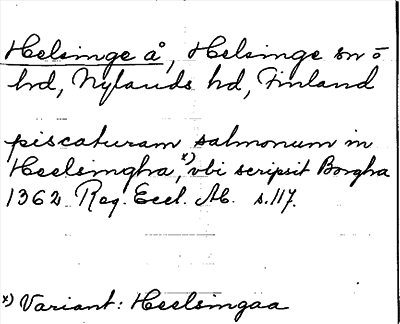 Helsinge å, Helsinge sn o
hd, Nylands hd, Finland
piscaturam salmonum in
Heelsingha,x) vbi scripsit Borgha
1362 Reg. Eccl. Ab. s. 117.
x) Variant: Heelsingaa